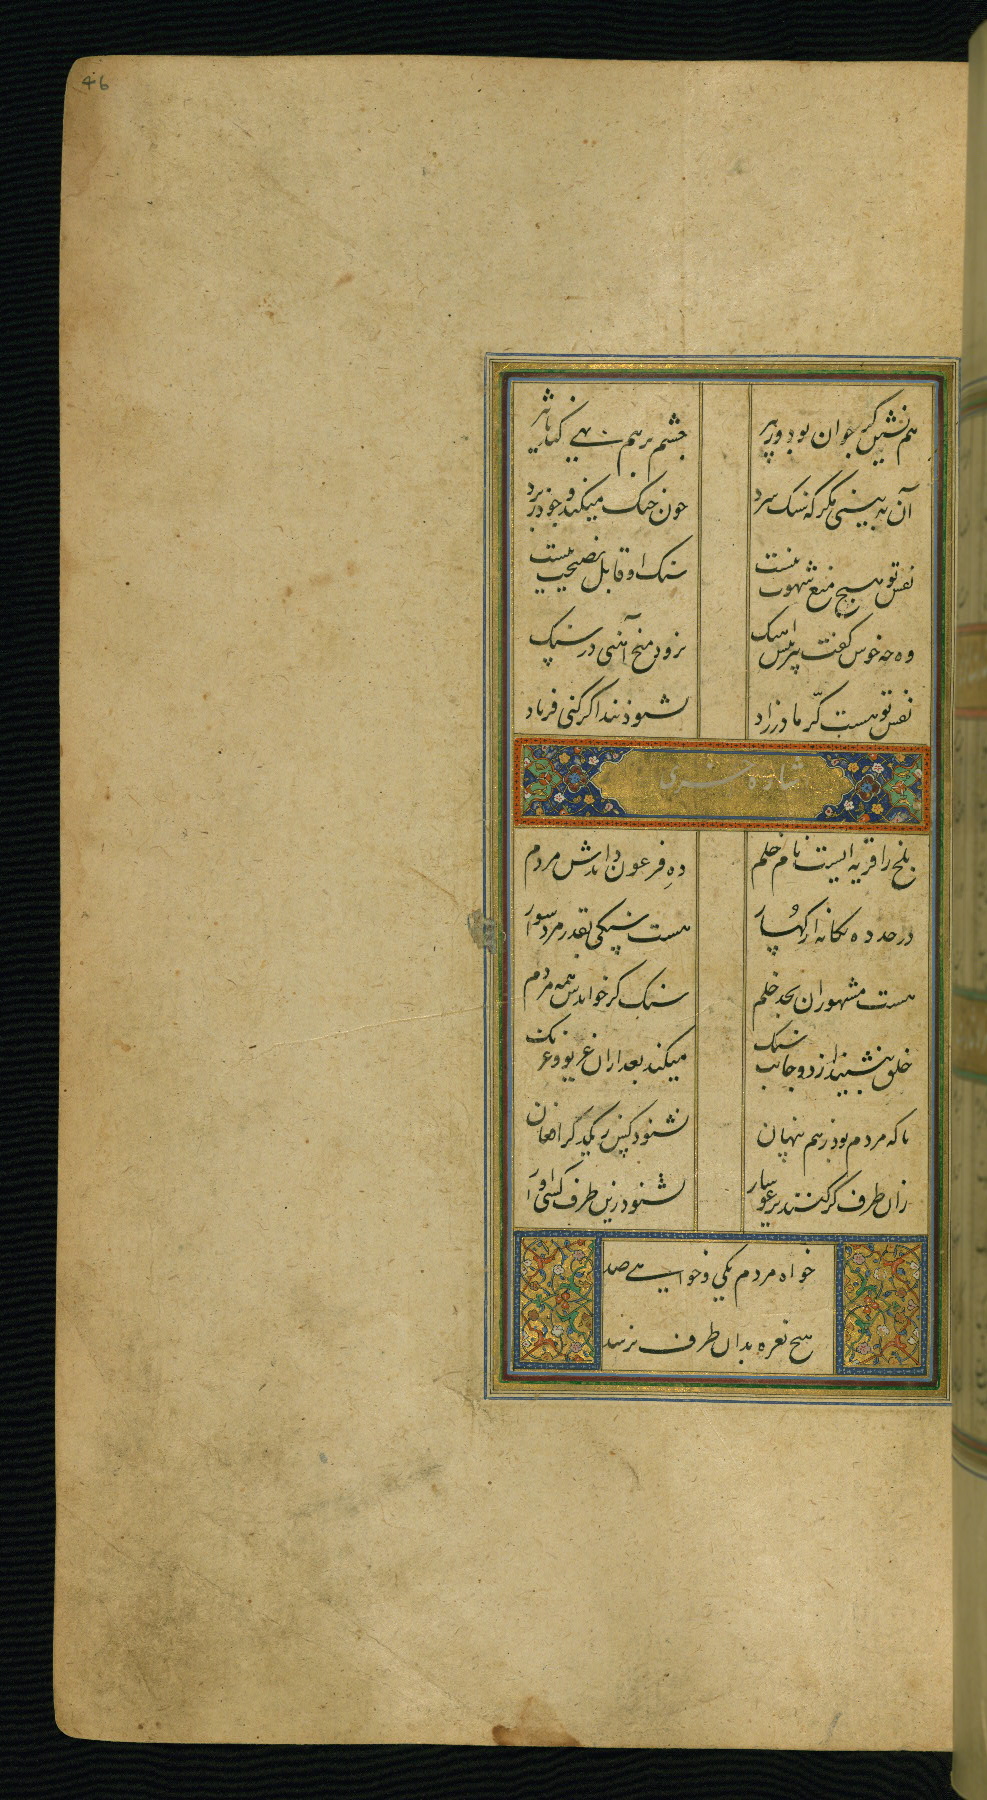 46
هم نشین گر جوان بود ور پیر
چشم بر هم نهی کنار پذیر
آن نه بینی مگر که سنک سرد
چون خنک میکند وجود ز برد
نفس تو هیچ منع شهوت نیست
سنک او قابل نصیحت نیست
وه چه خوش کفت پیر
نرود میخ آهنی در سنک
نفس تو هست کرّ مادرزاد
نشنود پند اکر کنی فریاد
بلخ را قریه ایست نام خلم
ده فرعون داندش مردم
در حد ده از کهسار
هست سنکی بقدر مرد سوار
هست مشهور ان بحد خلم
سنک کر خواندش همه مردم
خلق بنشیند از دو جانب سنک
میکند بعد ازان غریو و
تا که مردم بود ز هم پنهان
نشنود کس ز یکدکر افغان
زان طرف کر کنند
نشنود زین طرف کسی اواز
خواه مردم یکی و خواهی صد
هیچ نعره بدان طرف نرسد